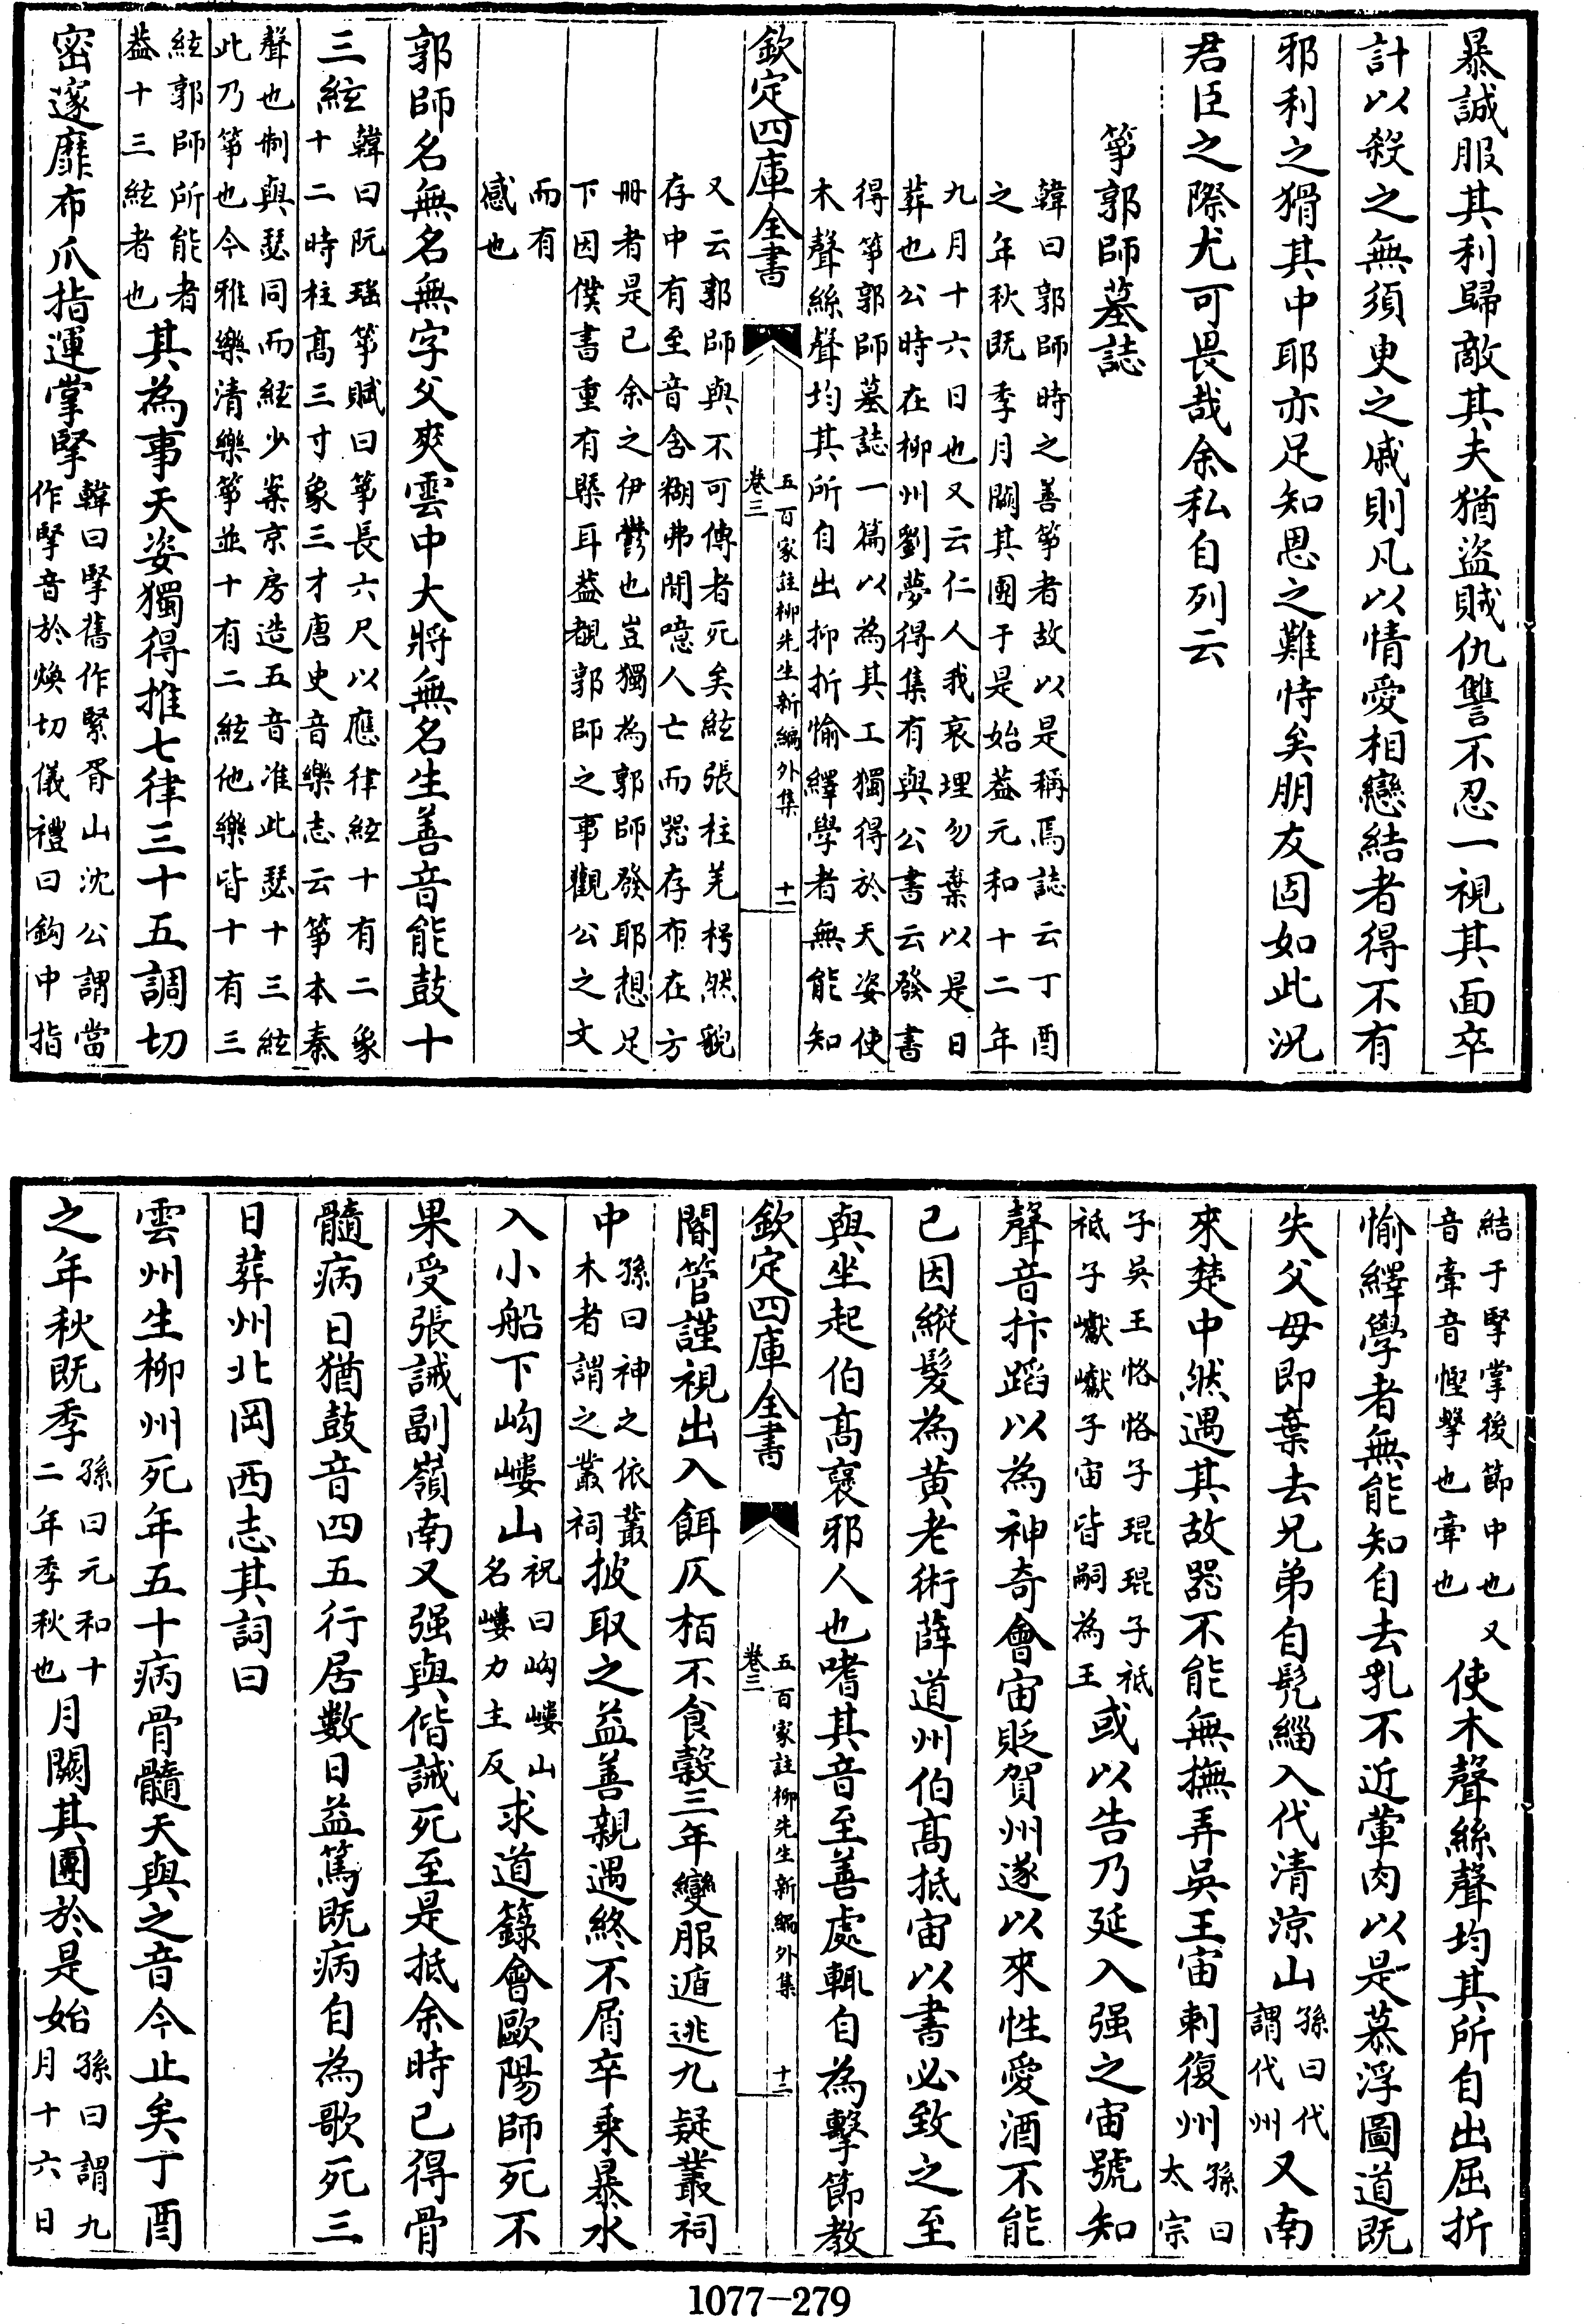 暴誠服其利歸敵其夫猶盜賊仇讐不忍一視其面卒
計以殺之無須臾之戚則凡以情愛相戀結者得不有
邪利之猾其中耶亦足知恩之難恃矣朋友固如此況
君臣之際尤可畏哉余私自列云
箏郭師墓誌
韓曰郭師時之善箏者故以是稱焉誌云丁酉
之年秋既季月闕其團于是始葢元和十二年
九月十六日也又云仁人我哀埋勿棄以是日
葬也公時在柳州劉夢得集有與公書云發書
得箏郭師墓誌一篇以為其工獨得於天姿使
木聲絲聲均其所自出抑折愉繹學者無能知
欽定四庫全書
五百家註柳先生新編外集
卷三
十一
又云郭師與不可傳者死矣絃張柱差枵然貌
存中有至音含糊弗聞噫人亡而器存布在方
冊者是已余之伊鬱也豈獨為郭師發耶想足
下因僕書重有槩耳葢覩郭師之事觀公之文
而有
感也
郭師名無名無字父爽雲中大將無名生善音能鼓十
三絃
韓曰阮瑀箏賦曰箏長六尺以應律絃十有二象
十二時柱髙三寸象三才唐史音樂志云箏本秦
聲也制與瑟同而絃少案京房造五音准此瑟十三絃
此乃箏也今雅樂清樂箏並十有二絃他樂皆十有三
絃郭師所能者
葢十三絃者也
其為事天姿獨得推七律三十五調切
密邃靡布爪指運掌掔
韓曰掔舊作緊胥山沈公謂當
作掔音於煥切儀禮曰鈎中指
結于掔掌後節中也又
音牽音慳掔也牽也
使木聲絲聲均其所自出屈折
愉繹學者無能知自去乳不近葷肉以是慕浮圖道既
失父母即棄去兄弟自髠緇入代清涼山
孫曰代
謂代州
又南
來楚中然遇其故器不能無撫弄吳王宙刺復州
孫曰
太宗
子吳王恪恪子琨琨子祗
祗子巘巘子宙皆嗣為王
或以告乃延入强之宙號知
聲音抃蹈以為神奇會宙貶賀州遂以來性愛酒不能
已因縱髮為黄老術薛道州伯髙抵宙以書必致之至
與坐起伯髙褒邪人也嗜其音至善處輒自為擊節教
欽定四庫全書
五百家註柳先生新編外集
卷三
十二
閽管謹視出入餌仄栢不食榖三年變服遁逃九疑叢祠
中
孫曰神之依叢
木者謂之叢祠
披取之益善親遇終不屑卒乘暴水
入小船下岣嶁山
祝曰岣嶁山
名嶁力主反
求道籙會歐陽師死不
果受張誡副嶺南又强與偕誡死至是抵余時已得骨
髓病日猶鼓音四五行居數日益篤既病自為歌死三
日葬州北岡西志其詞曰
雲州生柳州死年五十病骨髓天與之音今止矣丁酉
之年秋既季
孫曰元和十
二年季秋也
月闕其團於是始
孫曰謂九
月十六日
1077-279